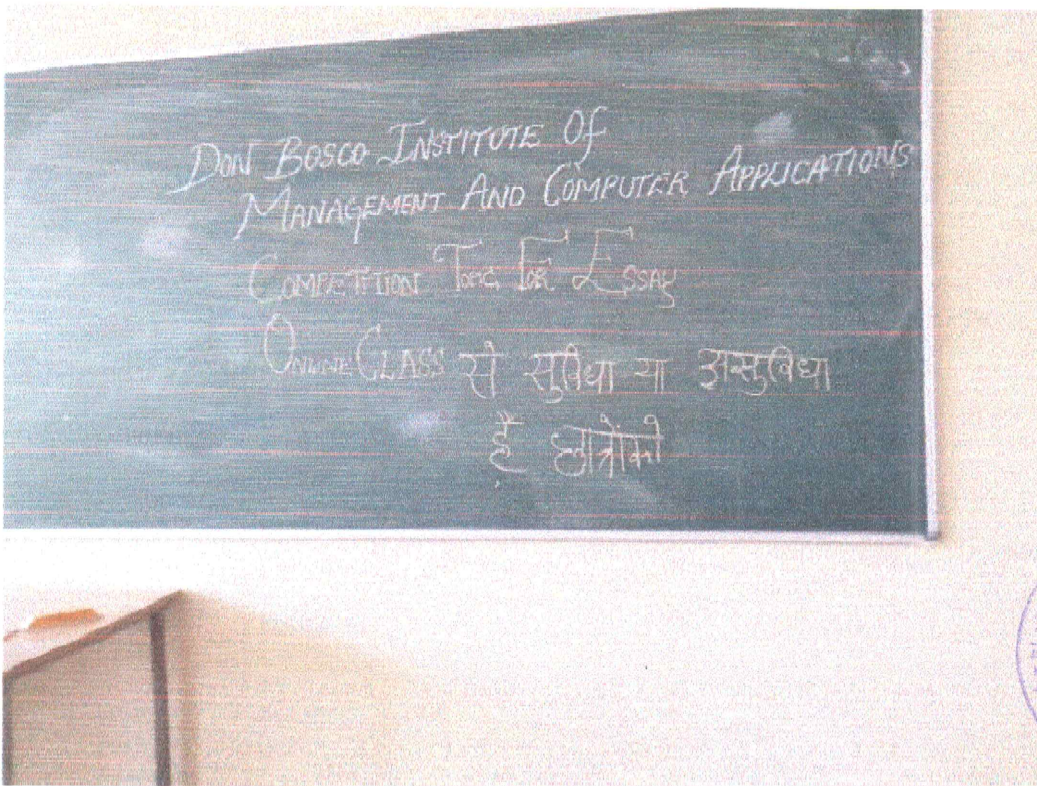 DON BOSCO INSTITUTE Of
MANAGEMENT AND COMPUTER APPLICATIONS
COMPETITION TOPIC FOR ESSAY
ONLINE CLASS से सुविधा या असुविधा
है छात्रोंको